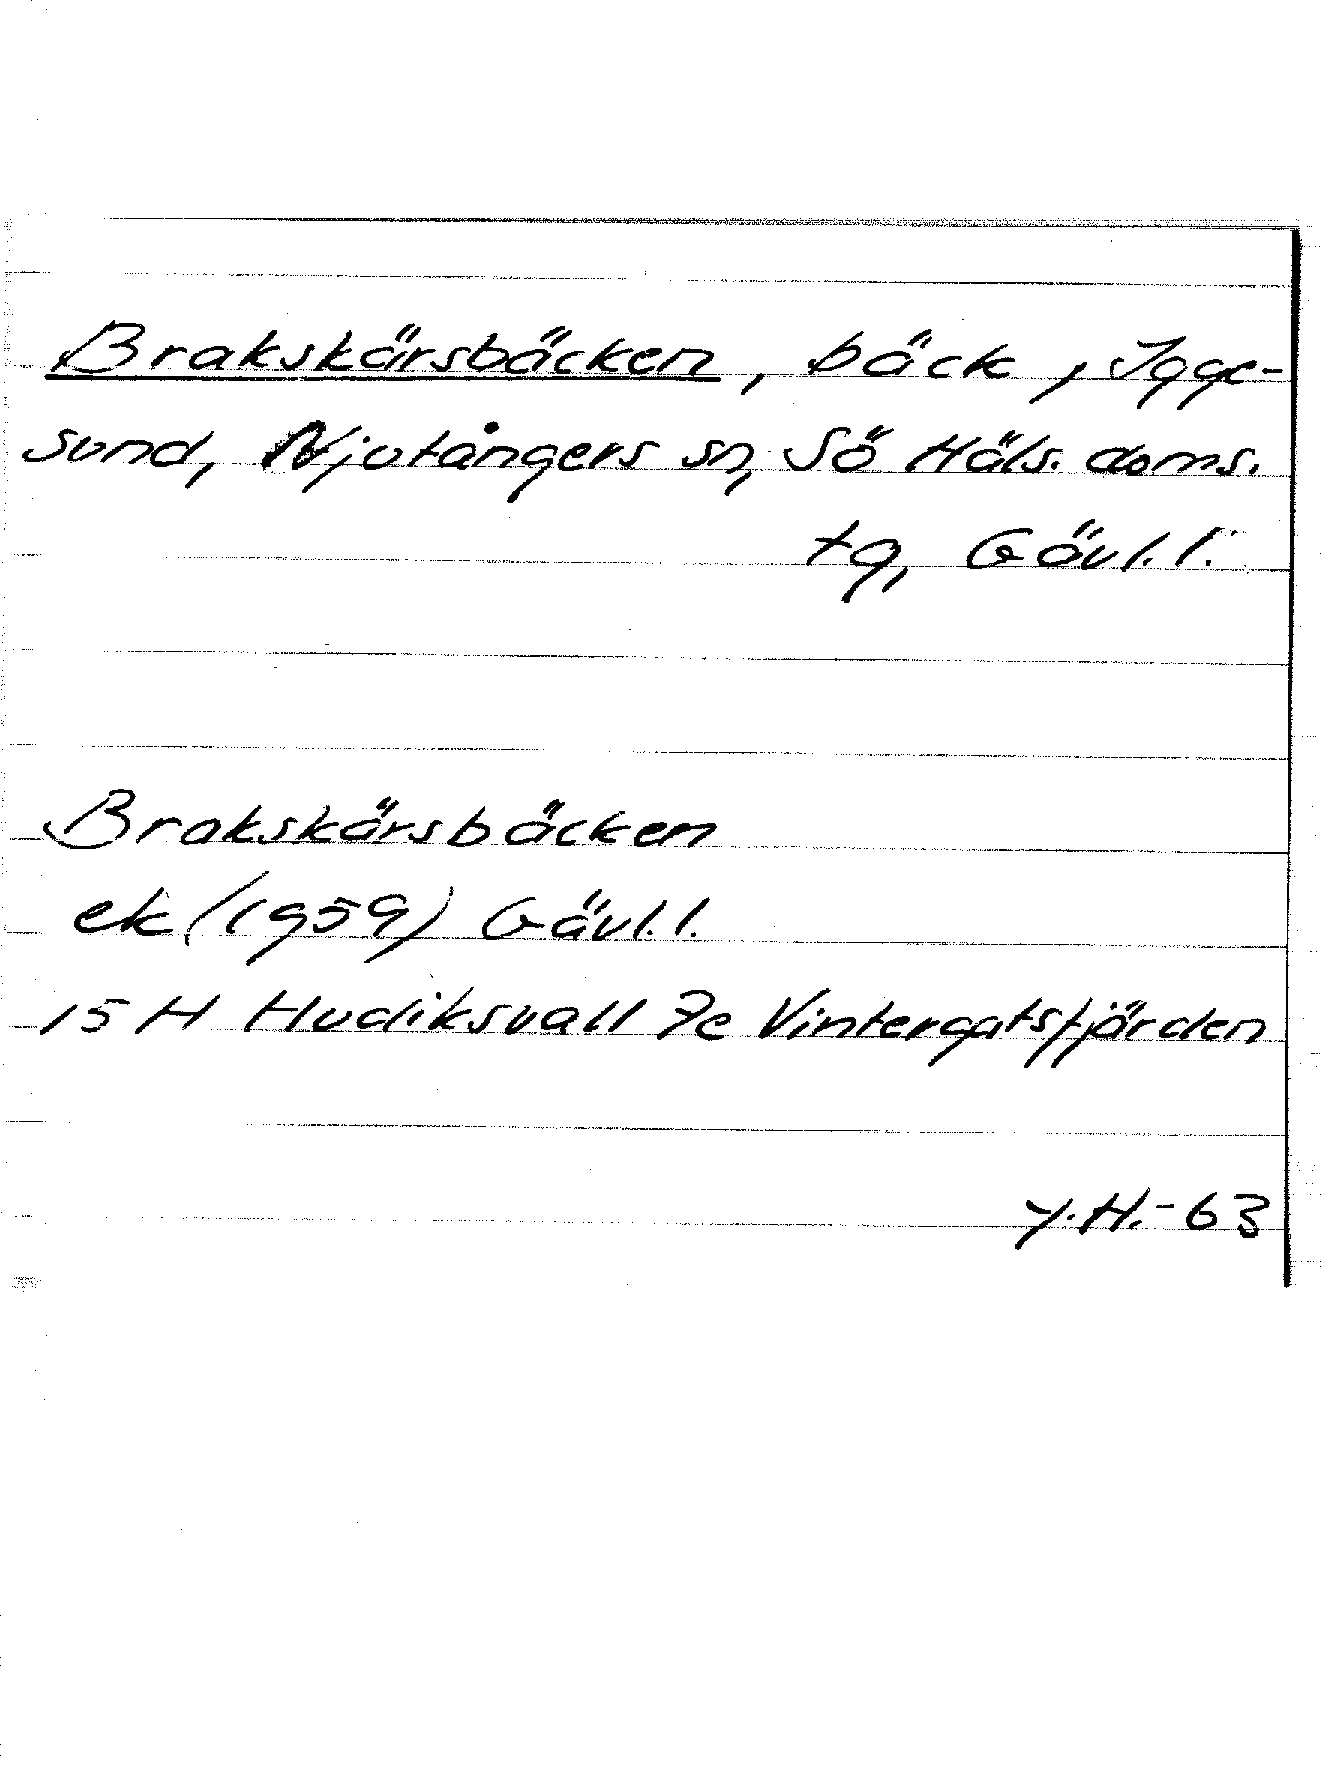 Brakskärsbäcken, bäck, Igge-
sund, Njutångers sn, Sö Häls. doms.
tg, Gävl. l.
Brakskärsbäcken
ek (1959) Gävl. l.
15 H Hudiksvall 7e Vintergatsfjärden
Y.H.-63